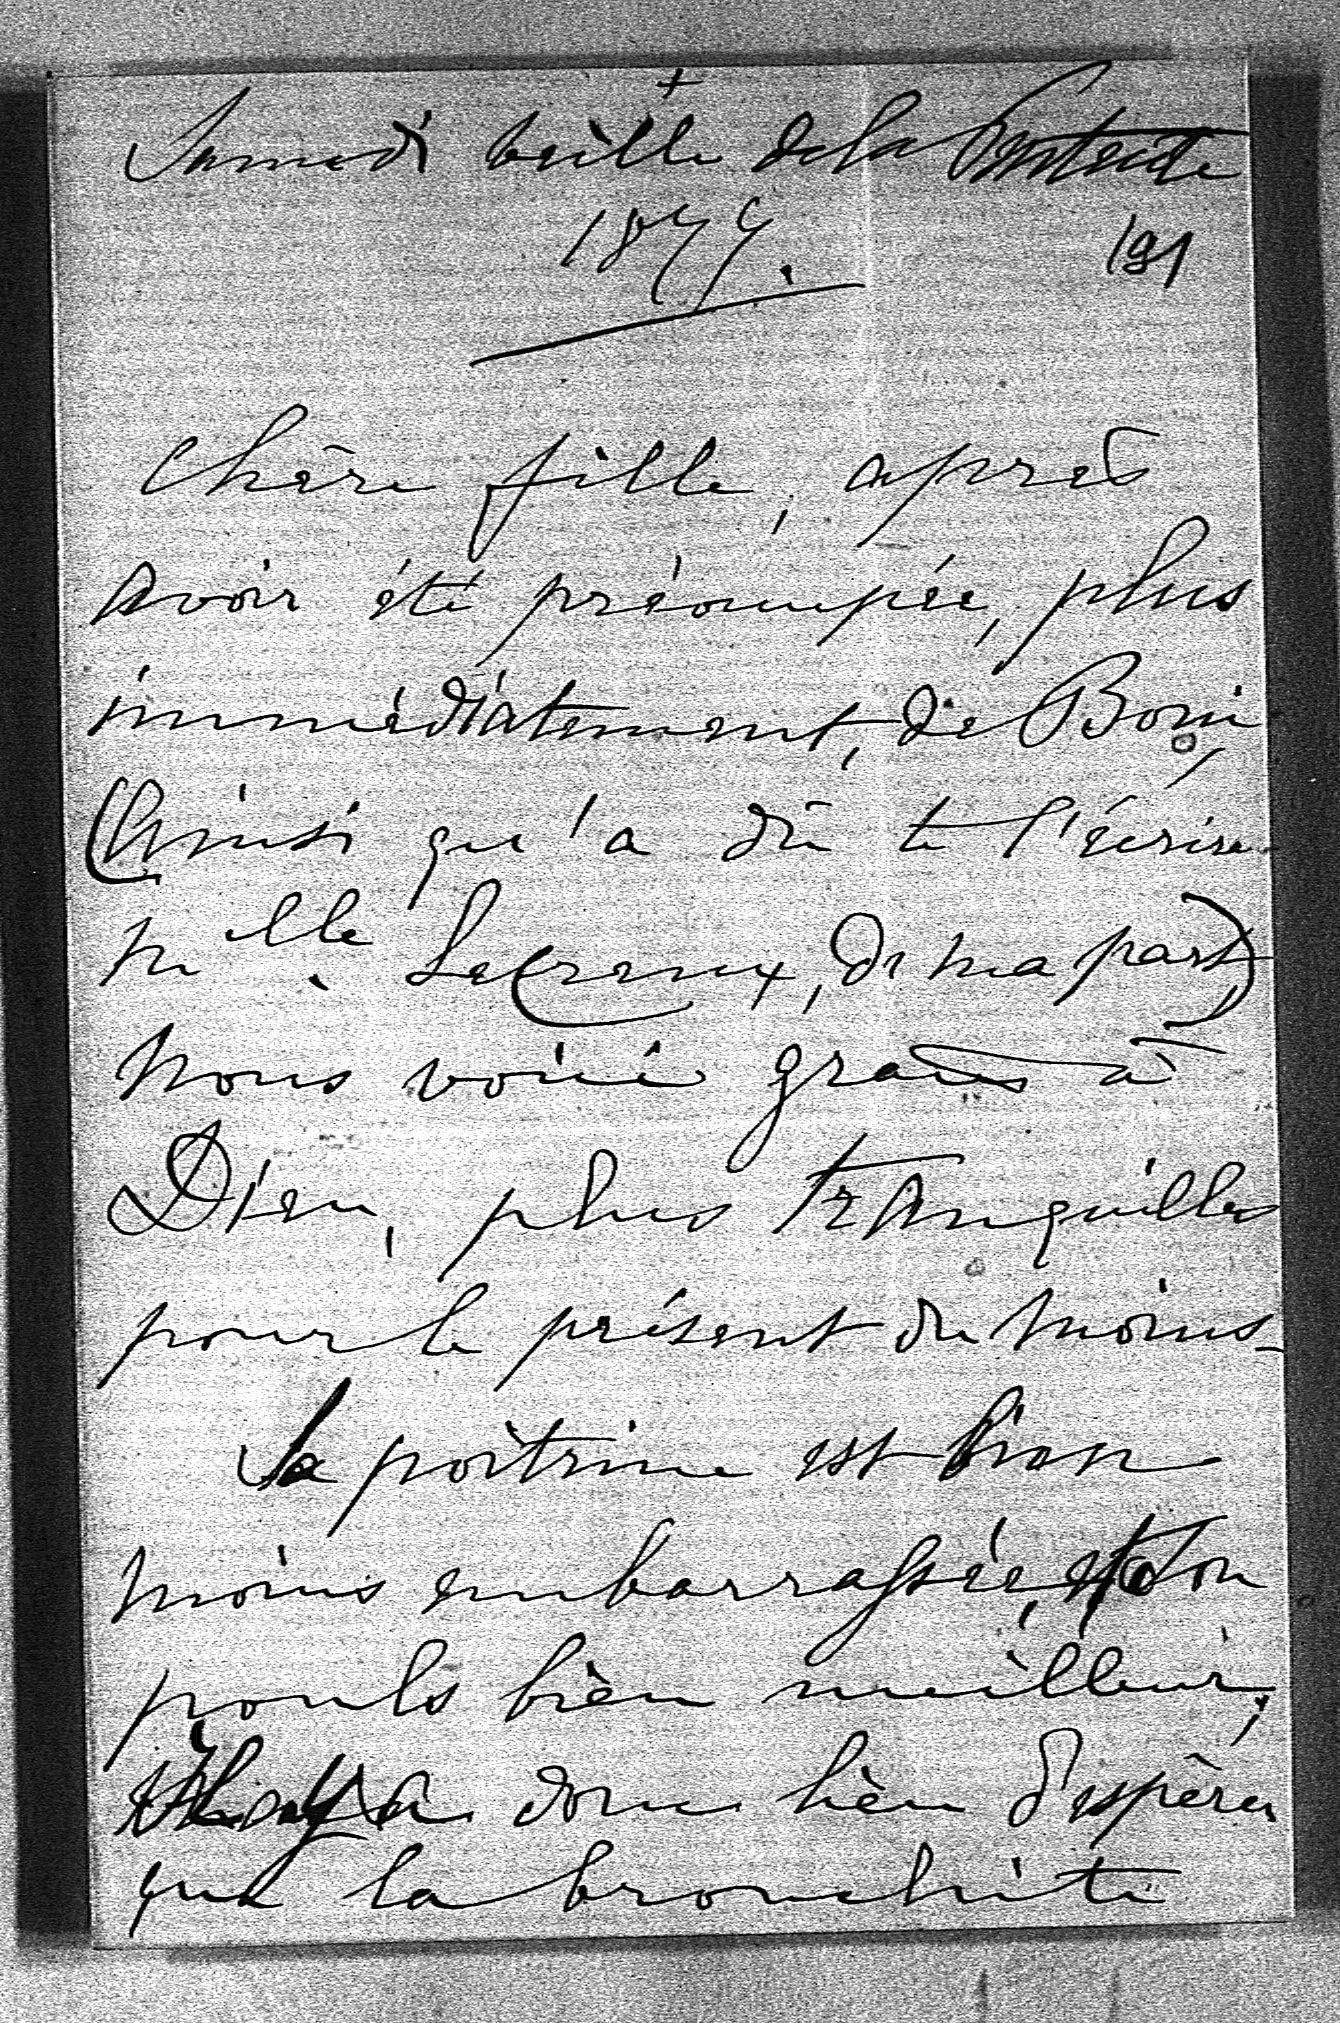 +
Samedi veille de la Pentecôte
1877.
191
Chère fille, après
avoir été préoccupée, plus
immédiatement, de Boni,
(ainsi qu'a dû te l'écrire
Mlle Lecreux, de ma part)
nous voici grâces à
Dieu, plus tranquilles
pour le présent du moins.
Sa poitrine est bien
moins embarrassée, et son
pouls bien meilleur;
il y a donc lieu d'espérer
que la bronchite